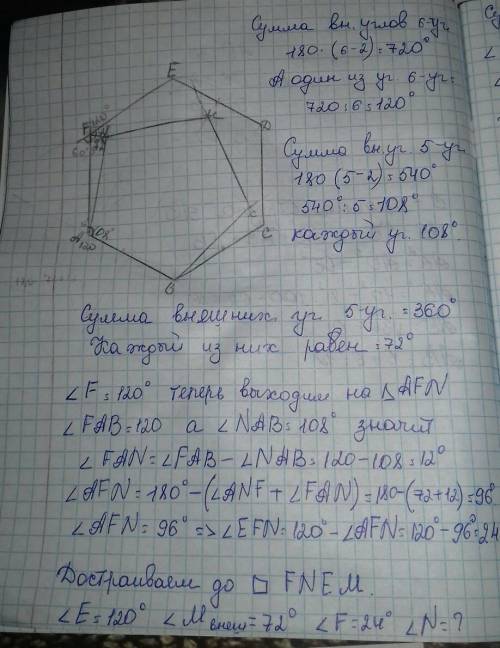 Сумма вн. углов 6-уг.
180·(6-2)=720°
А один из уг. 6-уг=
720:6=120°
E
D
120°
60°
Сумма вн. уг. 5-уг
180(5-2)=540°
540°:5=108°
каждый уг. 108°.
C
108
A
120
B
Сумма внешних уг. 5-уг.=360°
Каждый из них равен=72°
∠F=120° теперь выходим на △AFN
∠FAB=120 а ∠NAB=108° значит
∠FAN=∠FAB-∠NAB=120-108=12°
∠AFN=180°-(∠ANF+∠FAN)=180-(72+12)=96°
∠AFN=96°=>∠EFN=120°-∠AFN=120°-96°=24
Достраиваем до □ FNEM.
∠E=120° ∠M внеш=72° ∠F=24° ∠N=?